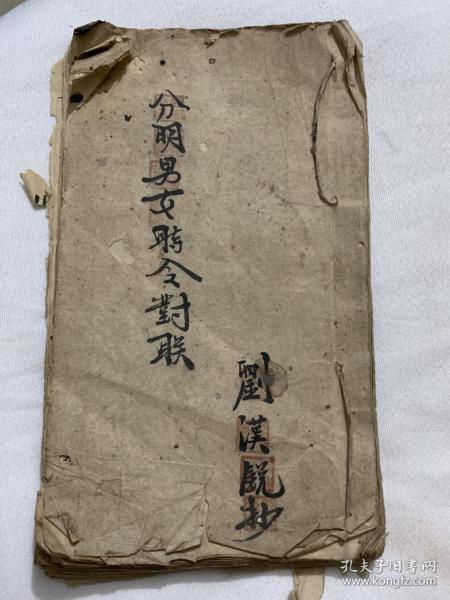 分明男女時令對联
劉漢鋭抄
孔夫子旧书网
www.kongfz.com